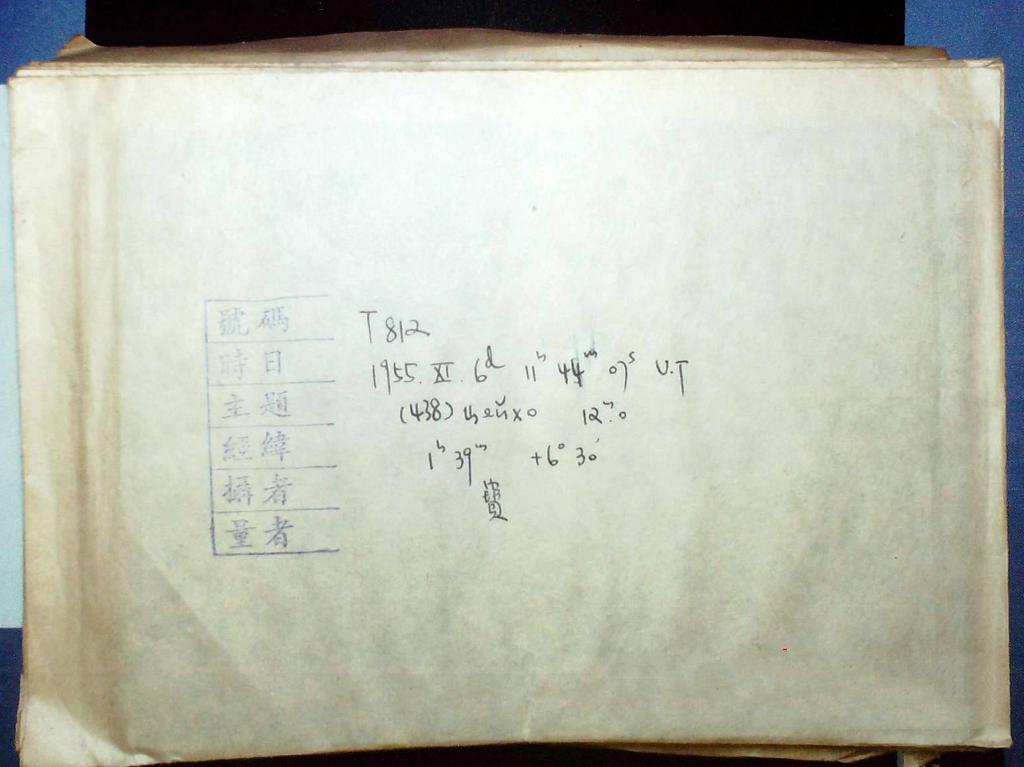 號碼 T 812
時日 1955. XI. 6ᵈ 11ʰ 44ᵐ 07ˢ U.T
主題 (438) Цейхо 12ᵐ.0
經緯 1ʰ 39ᵐ +6° 30′
攝者
量者